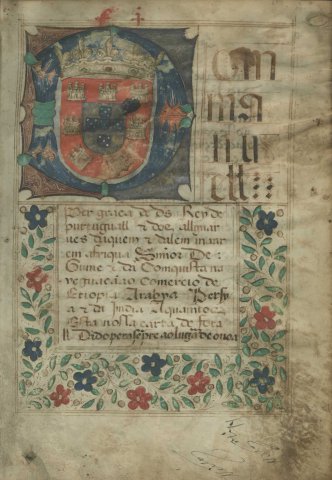 Dom
ma
nu
ell
Per graca de ds Rey de
purtuguall & dos allguar
ues daquem & dalem maar
em afriqua Senhor De
Guine & da Comquista na
veguacão comercio de
Etiopia Arabya Persy
a & da India A quantos
Esta nossa carta de fora
ll Dado pera sempre ao lugar de